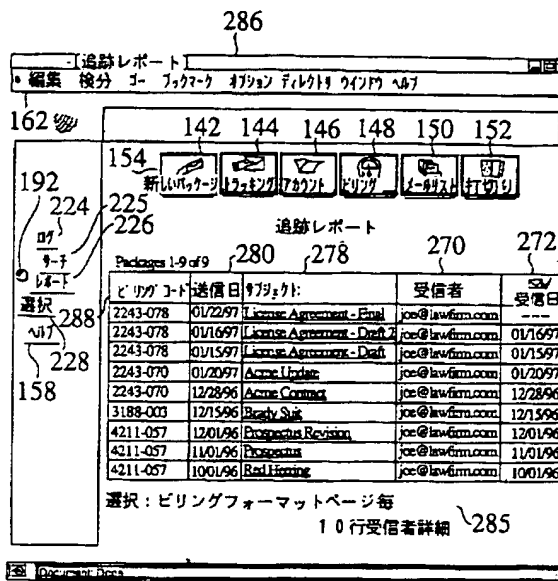 286
[追跡レポート]
編集 検分 ゴー ブックマーク オプション ディレクトリ ウインドウ ヘルプ
162 142 144 146 148 150 152
154
新しいパッケージ トラッキング アカウント ビリング メールリスト 打切り
192
224
225
226
ログ
サーチ
レポート
選択
288
ヘルプ
228
158
追跡レポート
Packages 1-9 of 9
280 278 270 272
ビリングコード 送信日 サブジェクト: 受信者 受信日
2243-078 01/22/97 License Agreement - Final joe@lawfirm.com ---
2243-078 01/16/97 License Agreement - Draft 2 joe@lawfirm.com 01/16/97
2243-078 01/15/97 License Agreement - Draft joe@lawfirm.com 01/15/97
2243-070 01/20/97 Acme Update joe@lawfirm.com 01/20/97
2243-070 12/28/96 Acme Contract joe@lawfirm.com 12/28/96
3188-003 12/15/96 Brady Suit joe@lawfirm.com 12/15/96
4211-057 12/01/96 Prospectus Revision joe@lawfirm.com 12/01/96
4211-057 11/01/96 Prospectus joe@lawfirm.com 11/01/96
4211-057 10/01/96 Red Herring joe@lawfirm.com 10/01/96
選択:ビリングフォーマットページ毎
10行受信者詳細
285
Document: Done